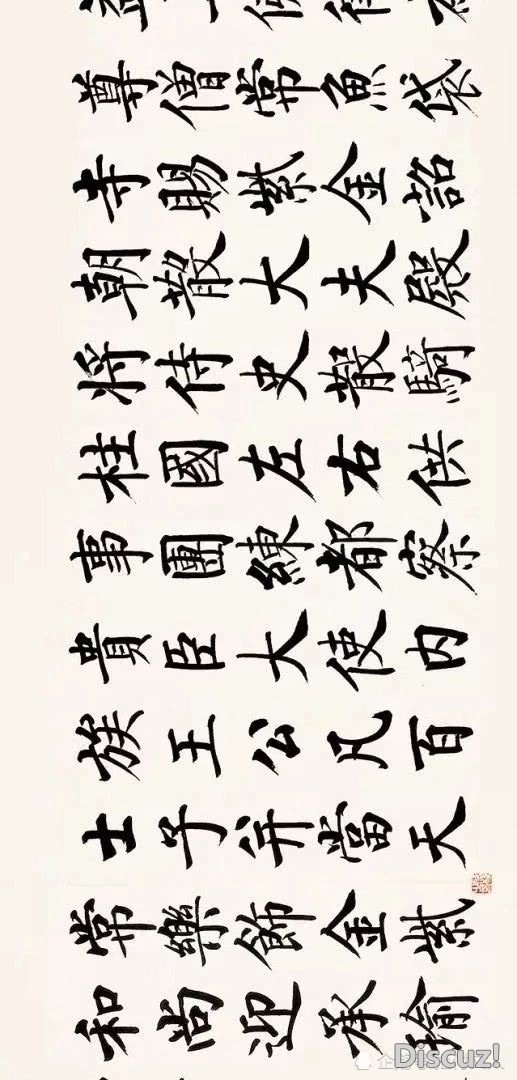 尊僧常魚袋
寺賜紫金詔
朝散大夫殿
將侍史散騎
柱國左右供
事團練都察
貴臣大使内
族王公凡百
士子并當天
常樂飾金紫
和尚迎承瑜
Discuz!